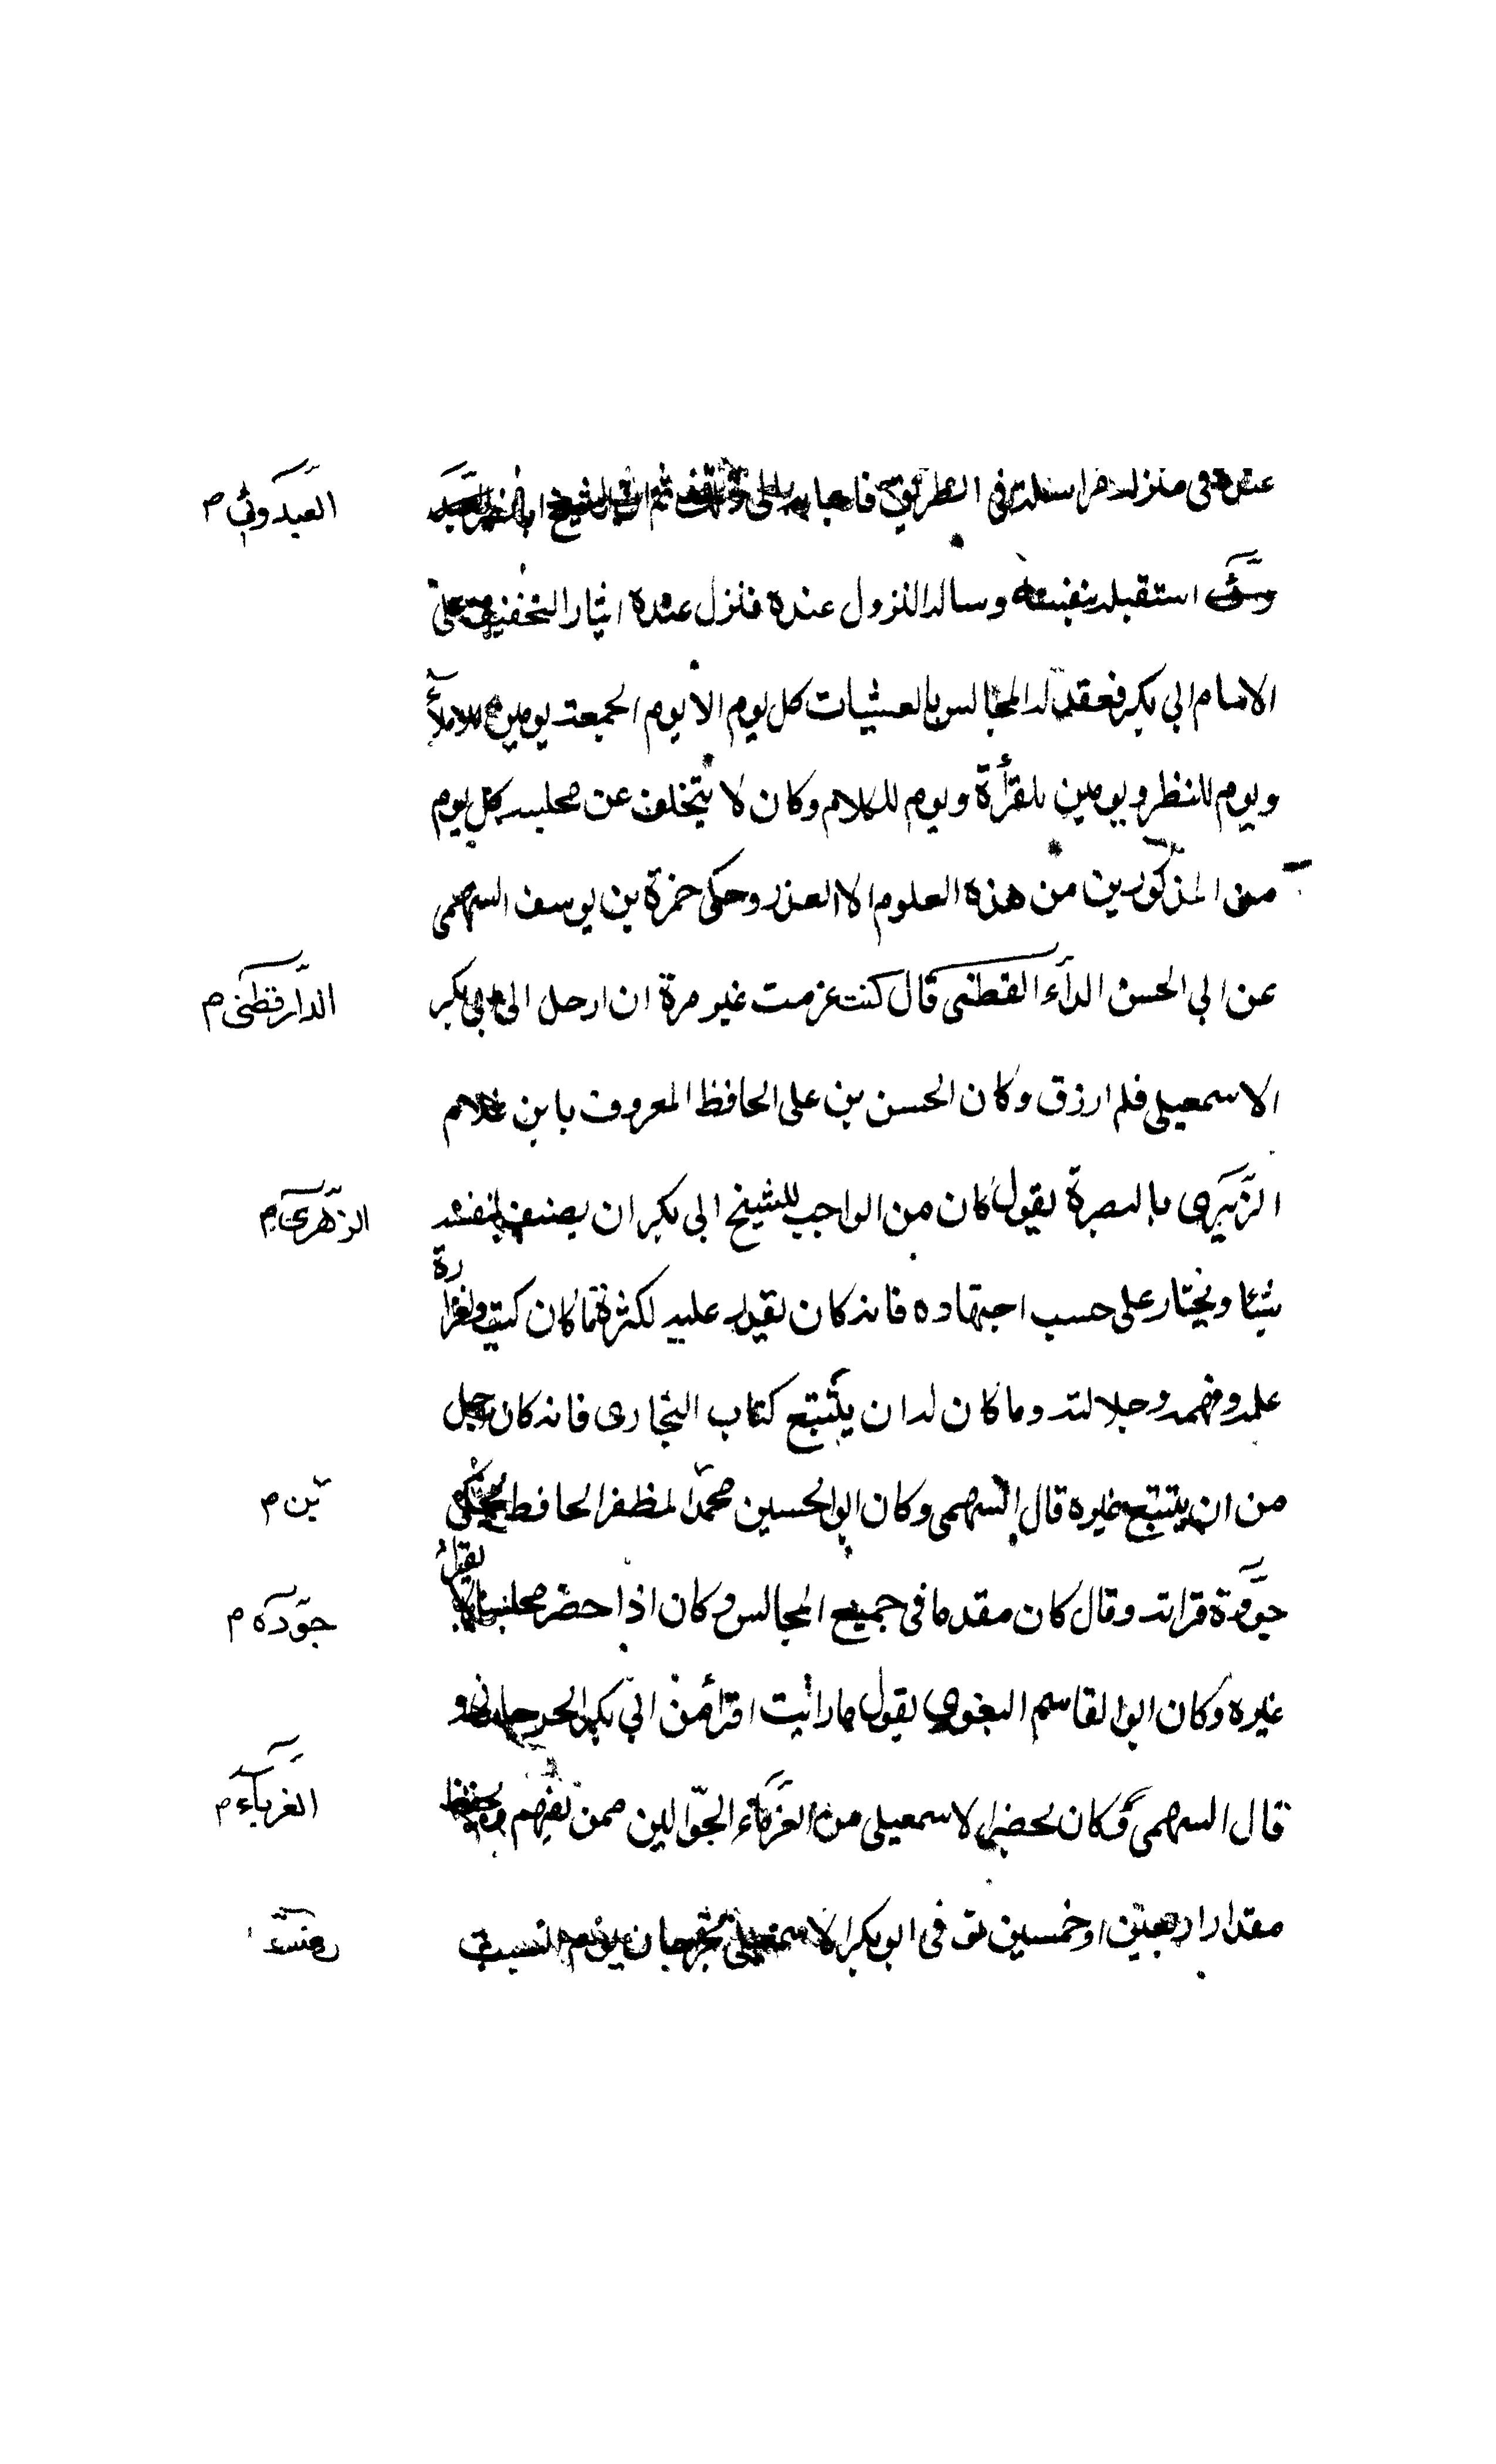 عنده في منزله فراسله في الطريق فاجابه الى ذلك ثم ان الشيخ ابا نصر العبد
العبدوني م
استقبله بنفسه وساله النزول عنده فنزل عنده ايثارا للتخفيف على
الامام ابي بكر فعقد له المجالس بالعشيات كل يوم الا يوم الجمعة يومين للاملاء
ويوم للنظر ويومين للقرأة ويوم للكلام وكان لا يتخلف عن مجلسه كل يوم
من المذكورين من هذه العلوم الا لعذر وحكى حمزة بن يوسف السهمي
عن ابي الحسن الداء القطني قال كنت عزمت غير مرة ان ارحل الى ابي بكر
الدار قطني م
الاسمعيلي فلم ارزق وكان الحسن بن علي الحافظ المعروف بابن غلام
الزبيري بالبصرة يقول كان من الواجب للشيخ ابي بكر ان يصنف لنفسه
الزهري م
شيئا ويختار على حسب اجتهاده فانه كان يقدر عليه لكثرة ما كان كتب ولغزارة
علمه وفهمه وجلالته وما كان له ان يتتبع كتاب البخاري فانه كان اجل
من ان يتتبع غيره قال السهمي وكان ابو الحسين محمد المظفر الحافظ يحكي
بن م
جودة قراته وقال كان مقدما في جميع المجالس وكان اذا حضر مجلسا لا يقرا
جوده م
غيره وكان ابو القاسم البغوي يقول ما رايت اقرأ من ابي بكر الجرجاني و
قال السهمي وكان يحضر الاسمعيلي من الغرباء الجوالين ممن يفهم ويحفظ
الغرباء م
مقدار اربعين او خمسين توفي ابو بكر الاسمعيلي بجرجان يوم السبت